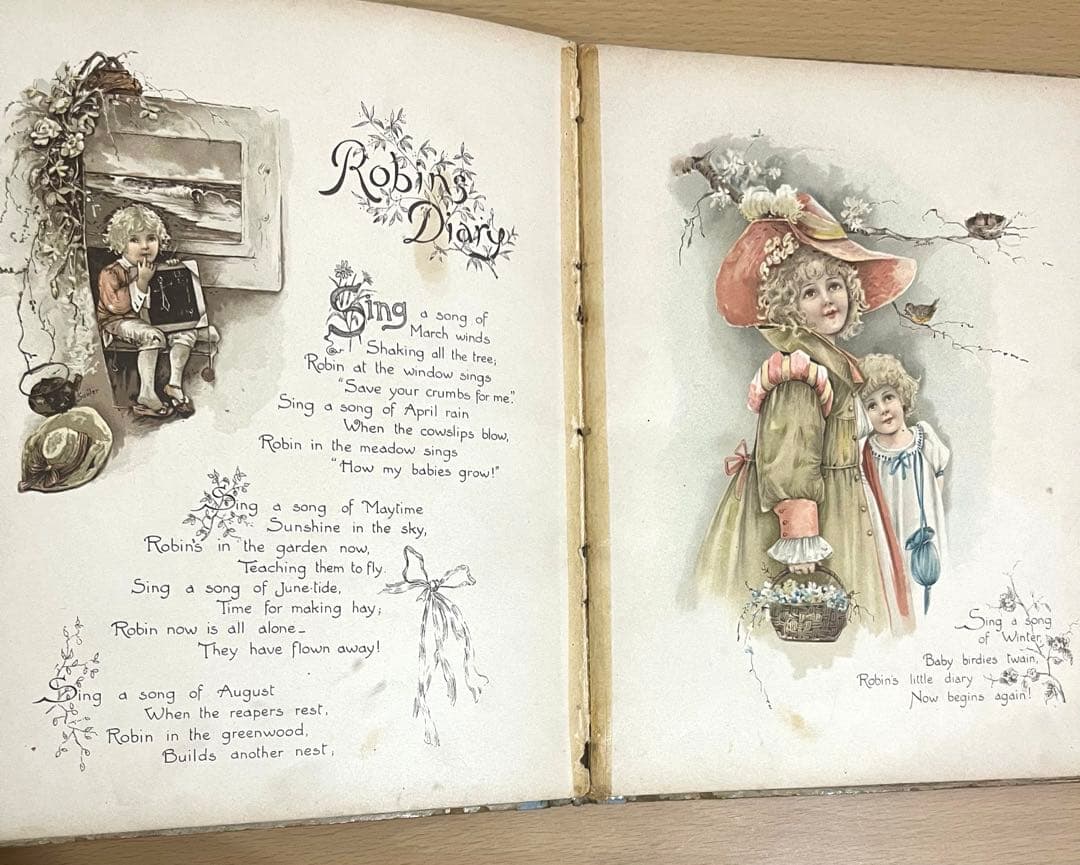 Robin's
Diary
Sing a song of
March winds
Shaking all the tree;
Robin at the window sings
"Save your crumbs for me."
Sing a song of April rain
When the cowslips blow,
Robin in the meadow sings
"How my babies grow!"
Sing a song of Maytime
Sunshine in the sky,
Robin's in the garden now,
Teaching them to fly.
Sing a song of June-tide,
Time for making hay;
Robin now is all alone–
They have flown away!
Sing a song of August
When the reapers rest,
Robin in the greenwood,
Builds another nest;
Sing a song
of Winter,
Baby birdies twain,
Robin's little diary
Now begins again!